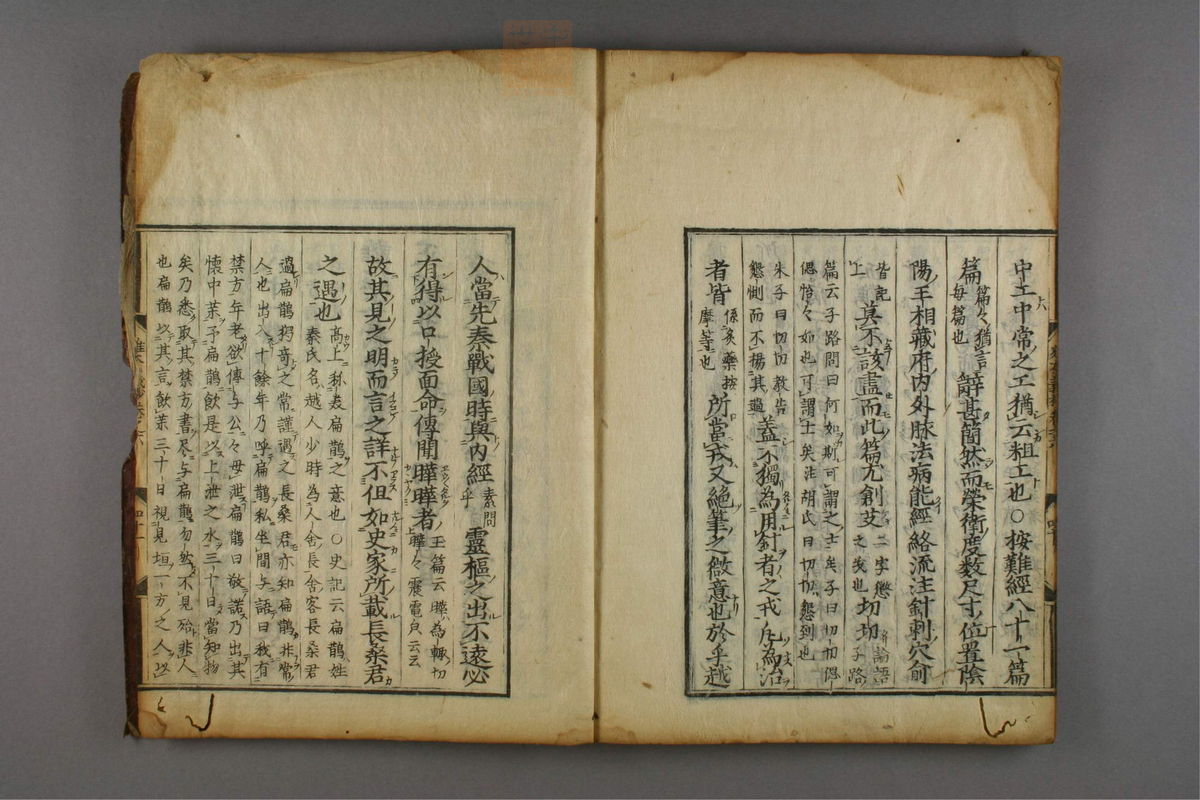 中工中常之工猶云粗工也○按難經八十一篇
篇篇々猶言每篇也辭甚簡然而榮衛度数尺寸位置陰
陽王相藏府内外脉法病能經絡流注針刺穴俞
皆記上莫不該盡而此篇尤創艾二字懲之義也切切論語子路
篇云子路問曰何如斯可謂之士矣子曰切切偲
偲怡々如也可謂士矣註胡氏曰切切懇到也
朱子曰切切教告懇惻而不揚其過蓋不獨為用針者之戒凡為治
者皆係灸藥按摩等也所當戒又絕筆之微意也於乎越
人當先秦戰國時與内經素問靈樞之出不遠必
有得以口授面命傳聞曄曄者玉篇云曄為輒切曄々震電皃云云
故其見之明而言之詳不但如史家所載長桑君
之遇也高上秦氏名越人少時為人舍長舍客長桑君
過扁鵲獨奇之常謹遇之長桑君亦知扁鵲非常
人也出入十餘年乃呼扁鵲私坐間与語曰我有
禁方年老欲傳与公々毋泄扁鵲曰敬諾乃出其
懷中藥予扁鵲飲是以上池之水三十日當知物
矣乃悉取其禁方書尽与扁鵲忽然不見殆非人
也扁鵲以其言飲藥三十日視見垣一方之人以